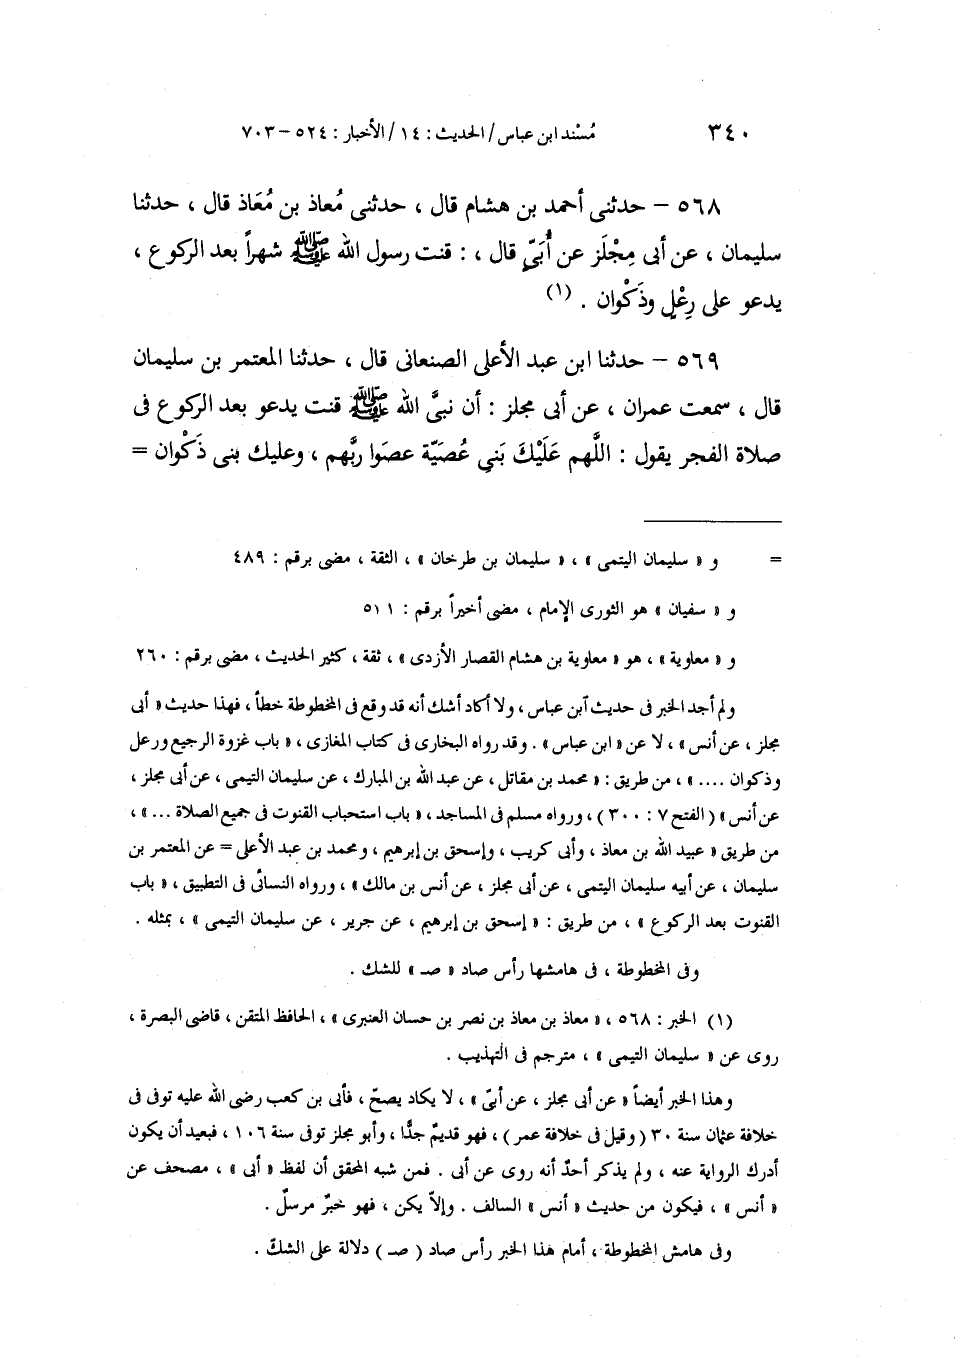 ٣٤٠ مُسْند ابن عباس/ الحديث : ١٤ / الأخبار : ٥٢٤ – ٧٠٣
٥٦٨ – حدثنى أحمد بن هشام قال ، حدثنى مُعاذ بن مُعَاذ قال ، حدثنا
سليمان ، عن أبى مِجْلَز عن أُبَيّ قال ، : قنت رسول الله ﷺ شهراً بعد الركوع ،
يدعو على رِعْلٍ وذَكْوان . (١)
٥٦٩ – حدثنا ابن عبد الأعلى الصنعانى قال ، حدثنا المعتمر بن سليمان
قال ، سمعت عمران ، عن أبى مجلز : أن نبىَّ الله ﷺ قنت يدعو بعد الركوع فى
صلاة الفجر يقول : اللَّهم عَلَيْكَ بَنِي عُصَيّة عصَوا ربَّهم ، وعليك بنى ذَكْوان =
= و « سليمان اليتمى » ، « سليمان بن طرخان » ، الثقة ، مضى برقم : ٤٨٩
و « سفيان » هو الثورى الإمام ، مضى أخيراً برقم : ٥١١
و « معاوية » ، هو « معاوية بن هشام القصار الأزدى » ، ثقة ، كثير الحديث ، مضى برقم : ٢٦٠
ولم أجد الخبر فى حديث آبن عباس ، ولا أكاد أشك أنه قد وقع فى المخطوطة خطأ ، فهذا حديث « أبى
مجلز ، عن أنس » ، لا عن « ابن عباس » . وقد رواه البخارى فى كتاب المغازى ، « باب غزوة الرجيع ورعل
وذكوان .... » ، من طريق : « محمد بن مقاتل ، عن عبد الله بن المبارك ، عن سليمان التيمى ، عن أبى مجلز ،
عن أنس » ( الفتح ٧ : ٣٠٠ ) ، ورواه مسلم فى المساجد ، « باب استحباب القنوت فى جميع الصلاة ... » ،
من طريق « عبيد الله بن معاذ ، وأبى كريب ، وإسحق بن إبرهيم ، ومحمد بن عبد الأعلى = عن المعتمر بن
سليمان ، عن أبيه سليمان اليتمى ، عن أبى مجلز ، عن أنس بن مالك » ، ورواه النسائى فى التطبيق ، « باب
القنوت بعد الركوع » ، من طريق : « إسحق بن إبرهيم ، عن جرير ، عن سليمان التيمى » ، بمثله .
وفى المخطوطة ، فى هامشها رأس صاد « صـ » للشك .
(١) الخبر : ٥٦٨ ، « معاذ بن معاذ بن نصر بن حسان العنبرى » ، الحافظ المتقن ، قاضى البصرة ،
روى عن « سليمان التيمى » ، مترجم فى التهذيب .
وهذا الخبر أيضاً « عن أبى مجلز ، عن أبىّ » ، لا يكاد يصحّ ، فأبى بن كعب رضى الله عليه توفى فى
خلافة عثمان سنة ٣٠ ( وقيل فى خلافة عمر ) ، فهو قديمٌ جدًّا ، وأبو مجلز توفى سنة ١٠٦ ، فبعيد أن يكون
أدرك الرواية عنه ، ولم يذكر أحدٌ أنه روى عن أبى . فمن شبه المحقق أن لفظ « أبى » ، مصحف عن
« أنس » ، فيكون من حديث « أنس » السالف . وإلاّ يكن ، فهو خبرٌ مرسلٌ .
وفى هامش المخطوطة ، أمام هذا الخبر رأس صاد ( صـ ) دلالة على الشكّ .